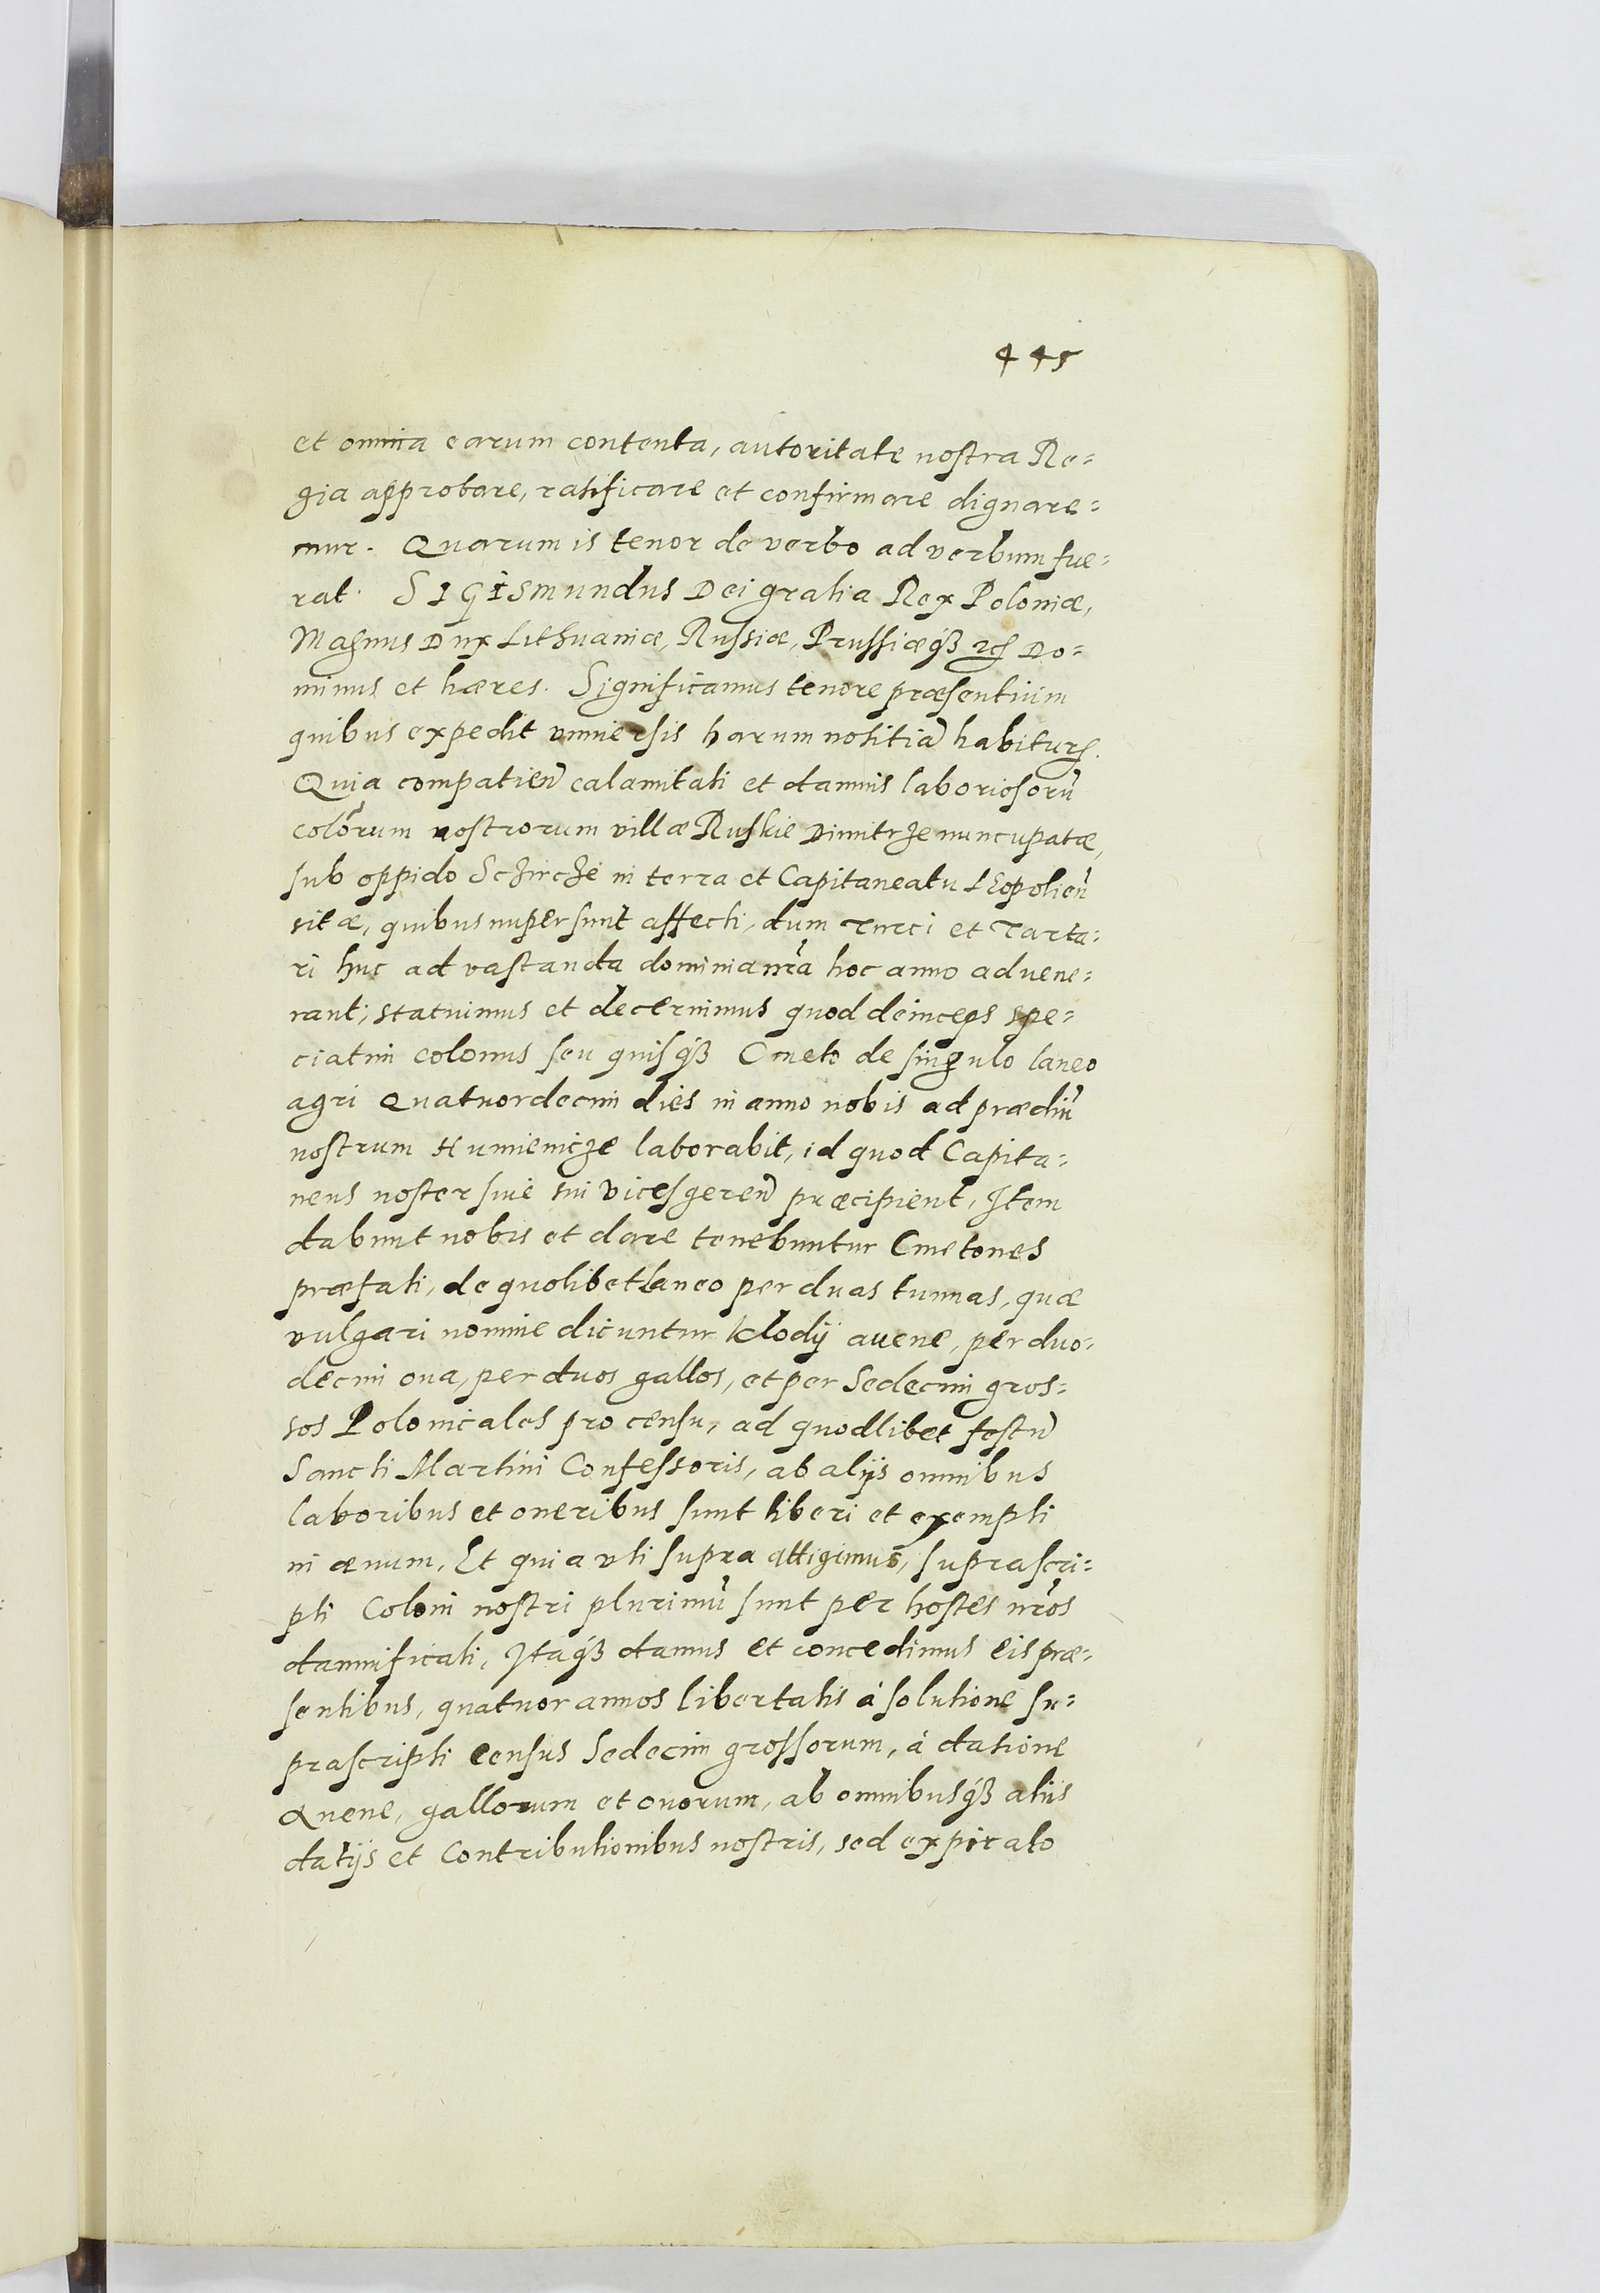 445
et omnia earum contenta, autoritate nostra Re-
gia approbare, ratificare et confirmare dignare-
mur. Quarum is tenor de verbo ad verbum fue-
rat. SIGISmundus Dei gratia Rex Poloniæ,
Magnus Dux Lithuaniæ, Russiæ, Prussiæqꝫ ꝛcꝭ Do-
minus et hæres. Significamus tenore præsentium
quibus expedit vniuersis harum notitiã habiturꝭ.
Quia compatieñ calamitati et damnis laboriosorũ
colõrum nostrorum villæ Ruskie Dimitrze nuncupatæ,
sub oppido Sczircze in terra et Capitaneatu LEopolieñ
sitæ, quibus nuper sunt affecti, dum Turci et Tarta-
ri huc ad vastanda dominia nr̃a hoc anno aduene-
rant; statuimus et decernimus quod deinceps spe-
ciatim colonus seu quisqꝫ Cmeto de singulo laneo
agri Quatuordecim dies in anno nobis ad prædiũ
nostrum Humienicze laborabit, id quod Capita-
neus noster siue sui vicesgereñ præcipient, Item
dabunt nobis et dare tenebuntur Cmetones
præfati, de quolibet laneo per duas tunnas, quæ
vulgari nomine dicuntur klodÿ auene, per duo-
decim oua, per duos gallos, et per Sedecim gros-
sos Polonicales pro censu, ad quodlibet festũ
Sancti Martini Confessoris, ab alijs omnibus
laboribus et oneribus sunt liberi et exempti
in æuum. Et quia vti supra attigimus, suprascri-
pti Coloni nostri plurimũ sunt per hostes nr̃os
damnificati, Itaqꝫ damus et concedimus eis præ-
sentibus, quatuor annos libertatis à solutione su-
prascripti census Sedecim grossorum, à datione
Auene, gallorum et ouorum, ab omnibusqꝫ aliis
datijs et Contributionibus nostris, sed expirato